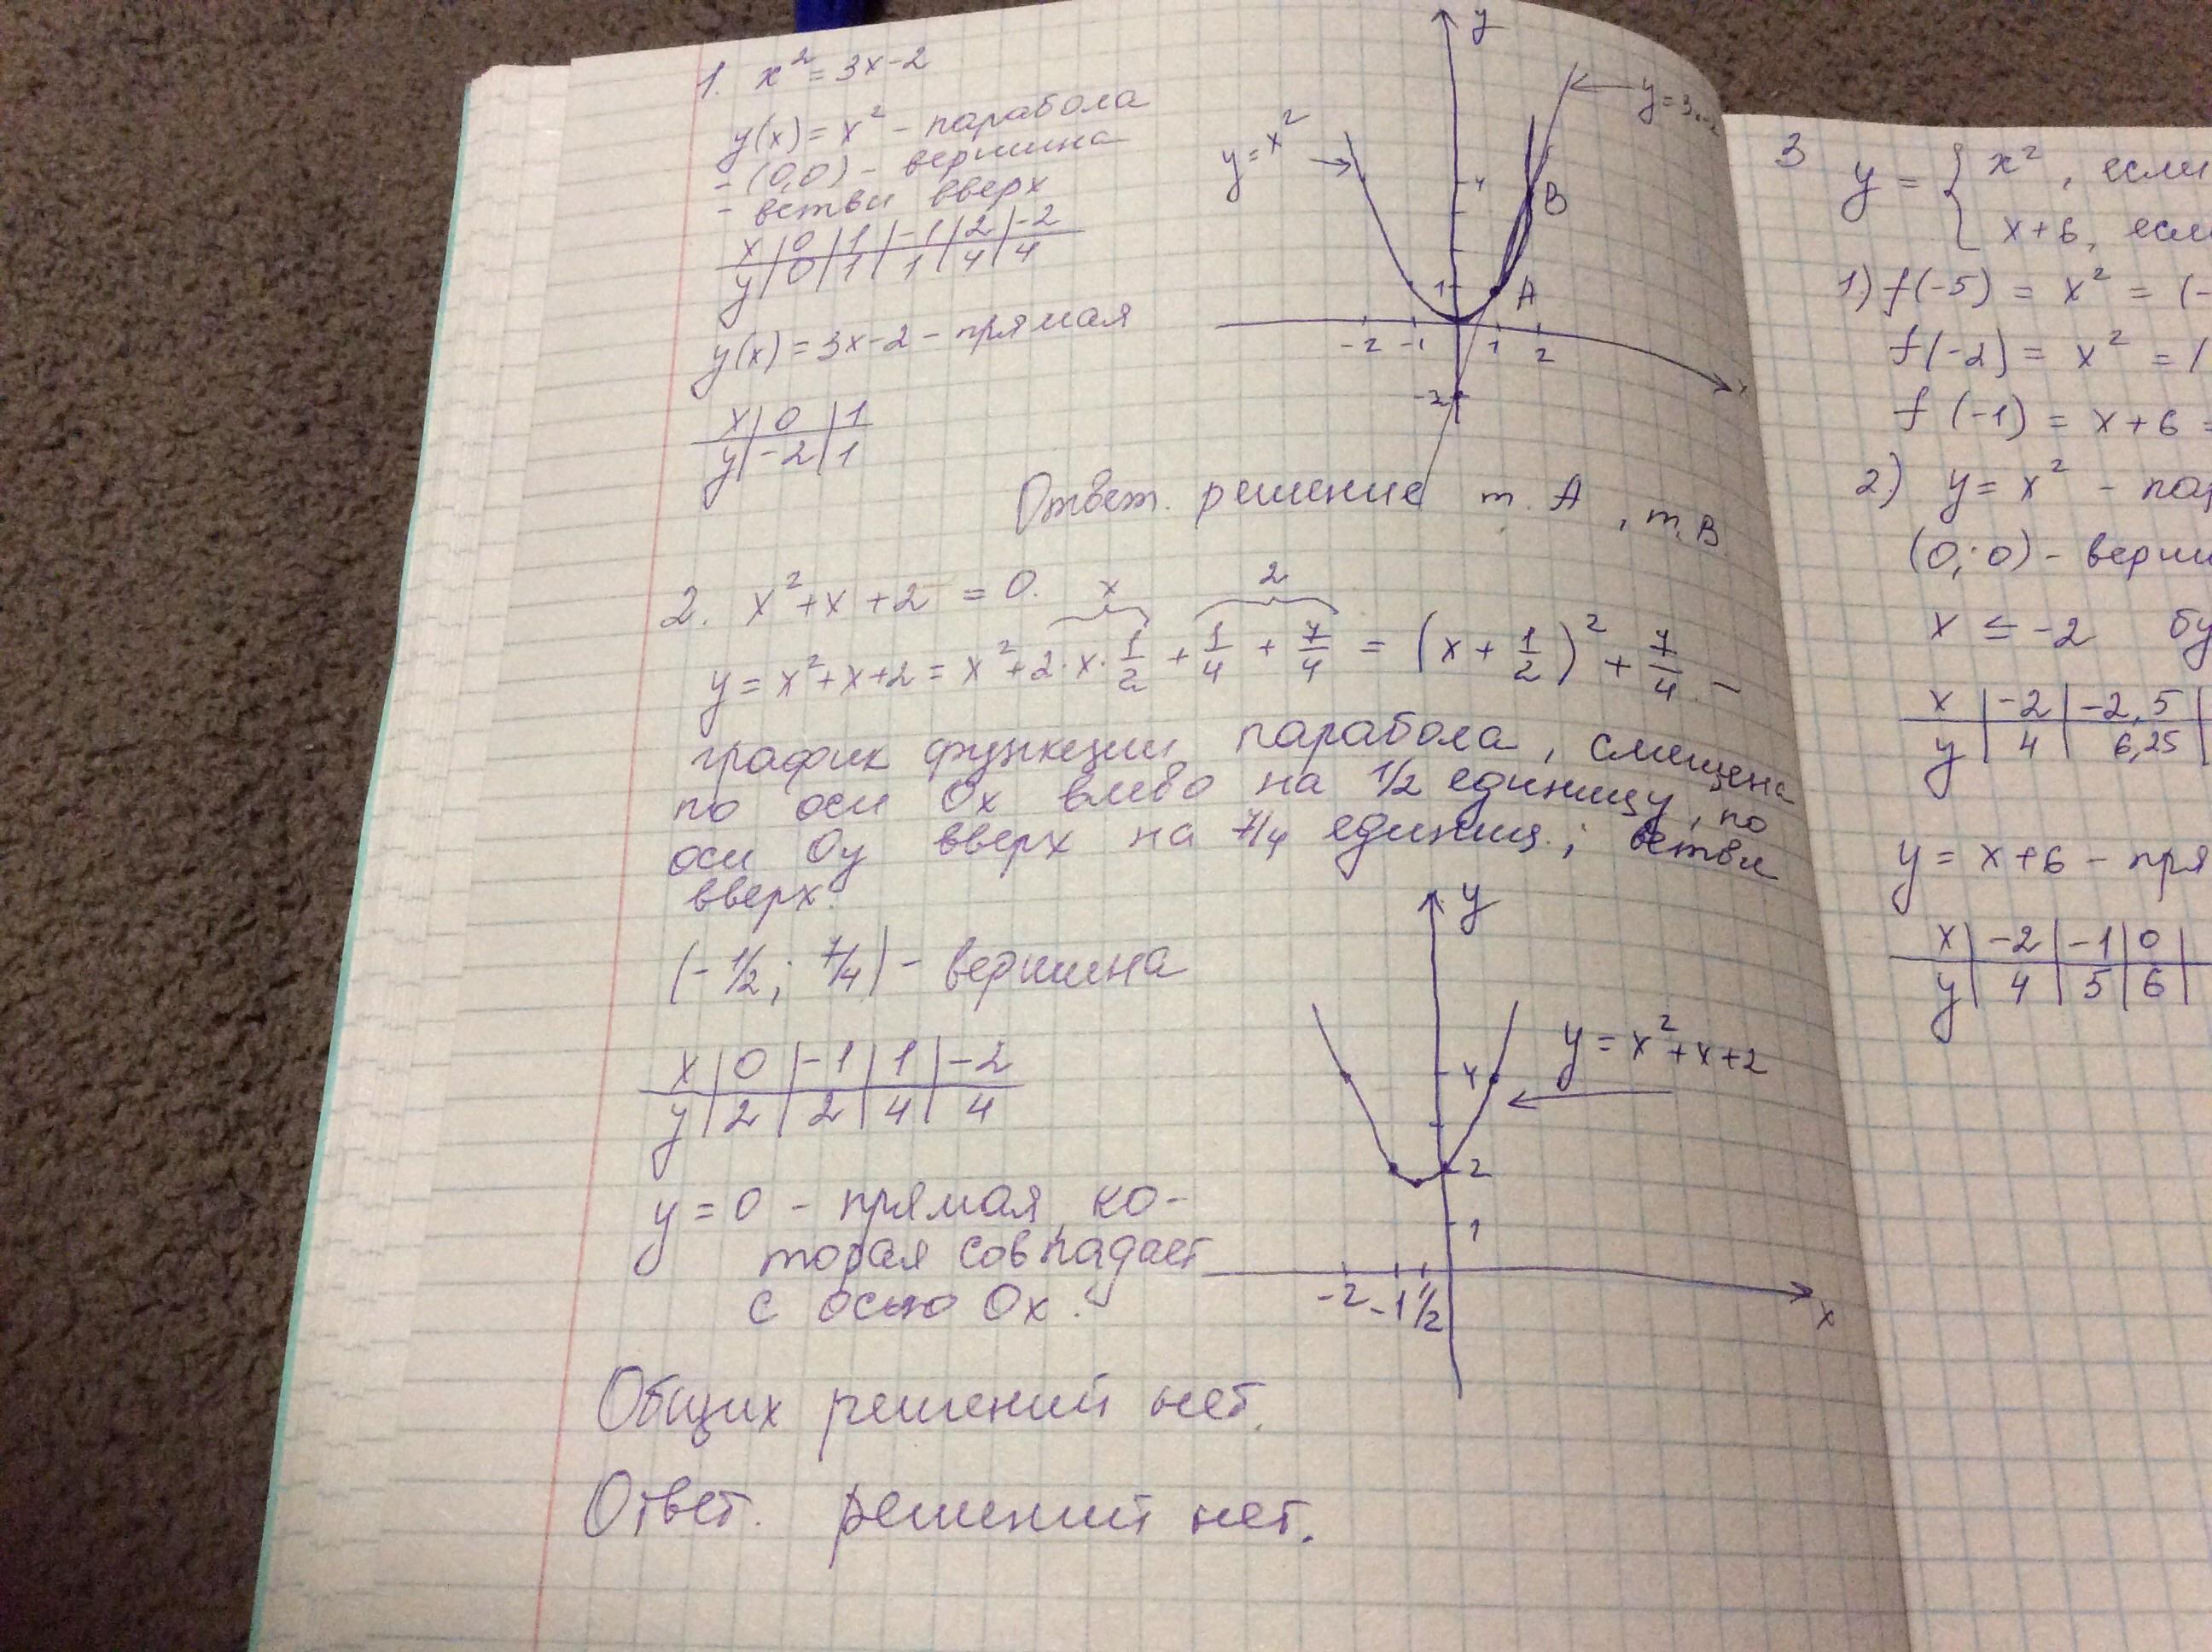 1. x² = 3x-2
y(x) = x² - парабола
- (0,0) - вершина
- ветви вверх
x | 0 | 1 | -1 | 2 | -2
y | 0 | 1 | 1 | 4 | 4
y(x) = 3x-2 - прямая
x | 0 | 1
y | -2 | 1
y
y = x²
y = 3x-2
4
B
1
A
-2 -1 1 2
-2
Ответ. решение т. A, т. B.
2. x² + x + 2 = 0.
x 2
y = x² + x + 2 = x² + 2·x·1/2 + 1/4 + 7/4 = (x + 1/2)² + 7/4 -
график функции парабола, смещена
по оси Ox влево на 1/2 единицу, по
оси Oy вверх на 7/4 единиц.; ветви
вверх.
(-1/2; 7/4) - вершина
x | 0 | -1 | 1 | -2
y | 2 | 2 | 4 | 4
y = 0 - прямая, ко-
торая совпадает
с осью Ox.
y
y = x² + x + 2
4
2
1
-2 -1 1/2
x
Общих решений нет.
Ответ. решений нет.
3 y = { x², если
x+6, если
1) f(-5) = x² = (-
f(-2) = x² = (
f(-1) = x+6 =
2) y = x² - пар
(0; 0) - верши
x ≤ -2 бу
x | -2 | -2,5 |
y | 4 | 6,25 |
y = x+6 - пря
x | -2 | -1 | 0 |
y | 4 | 5 | 6 |